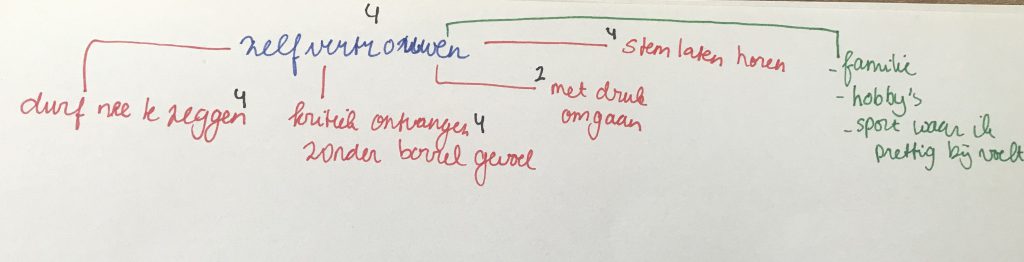 4
zelfvertrouwen
4 stem laten horen
- familie
- hobby's
- sport waar ik
prettig bij voelt
durf nee te zeggen 4
kritiek ontvangen 4
zonder gevoel
2 met druk
omgaan